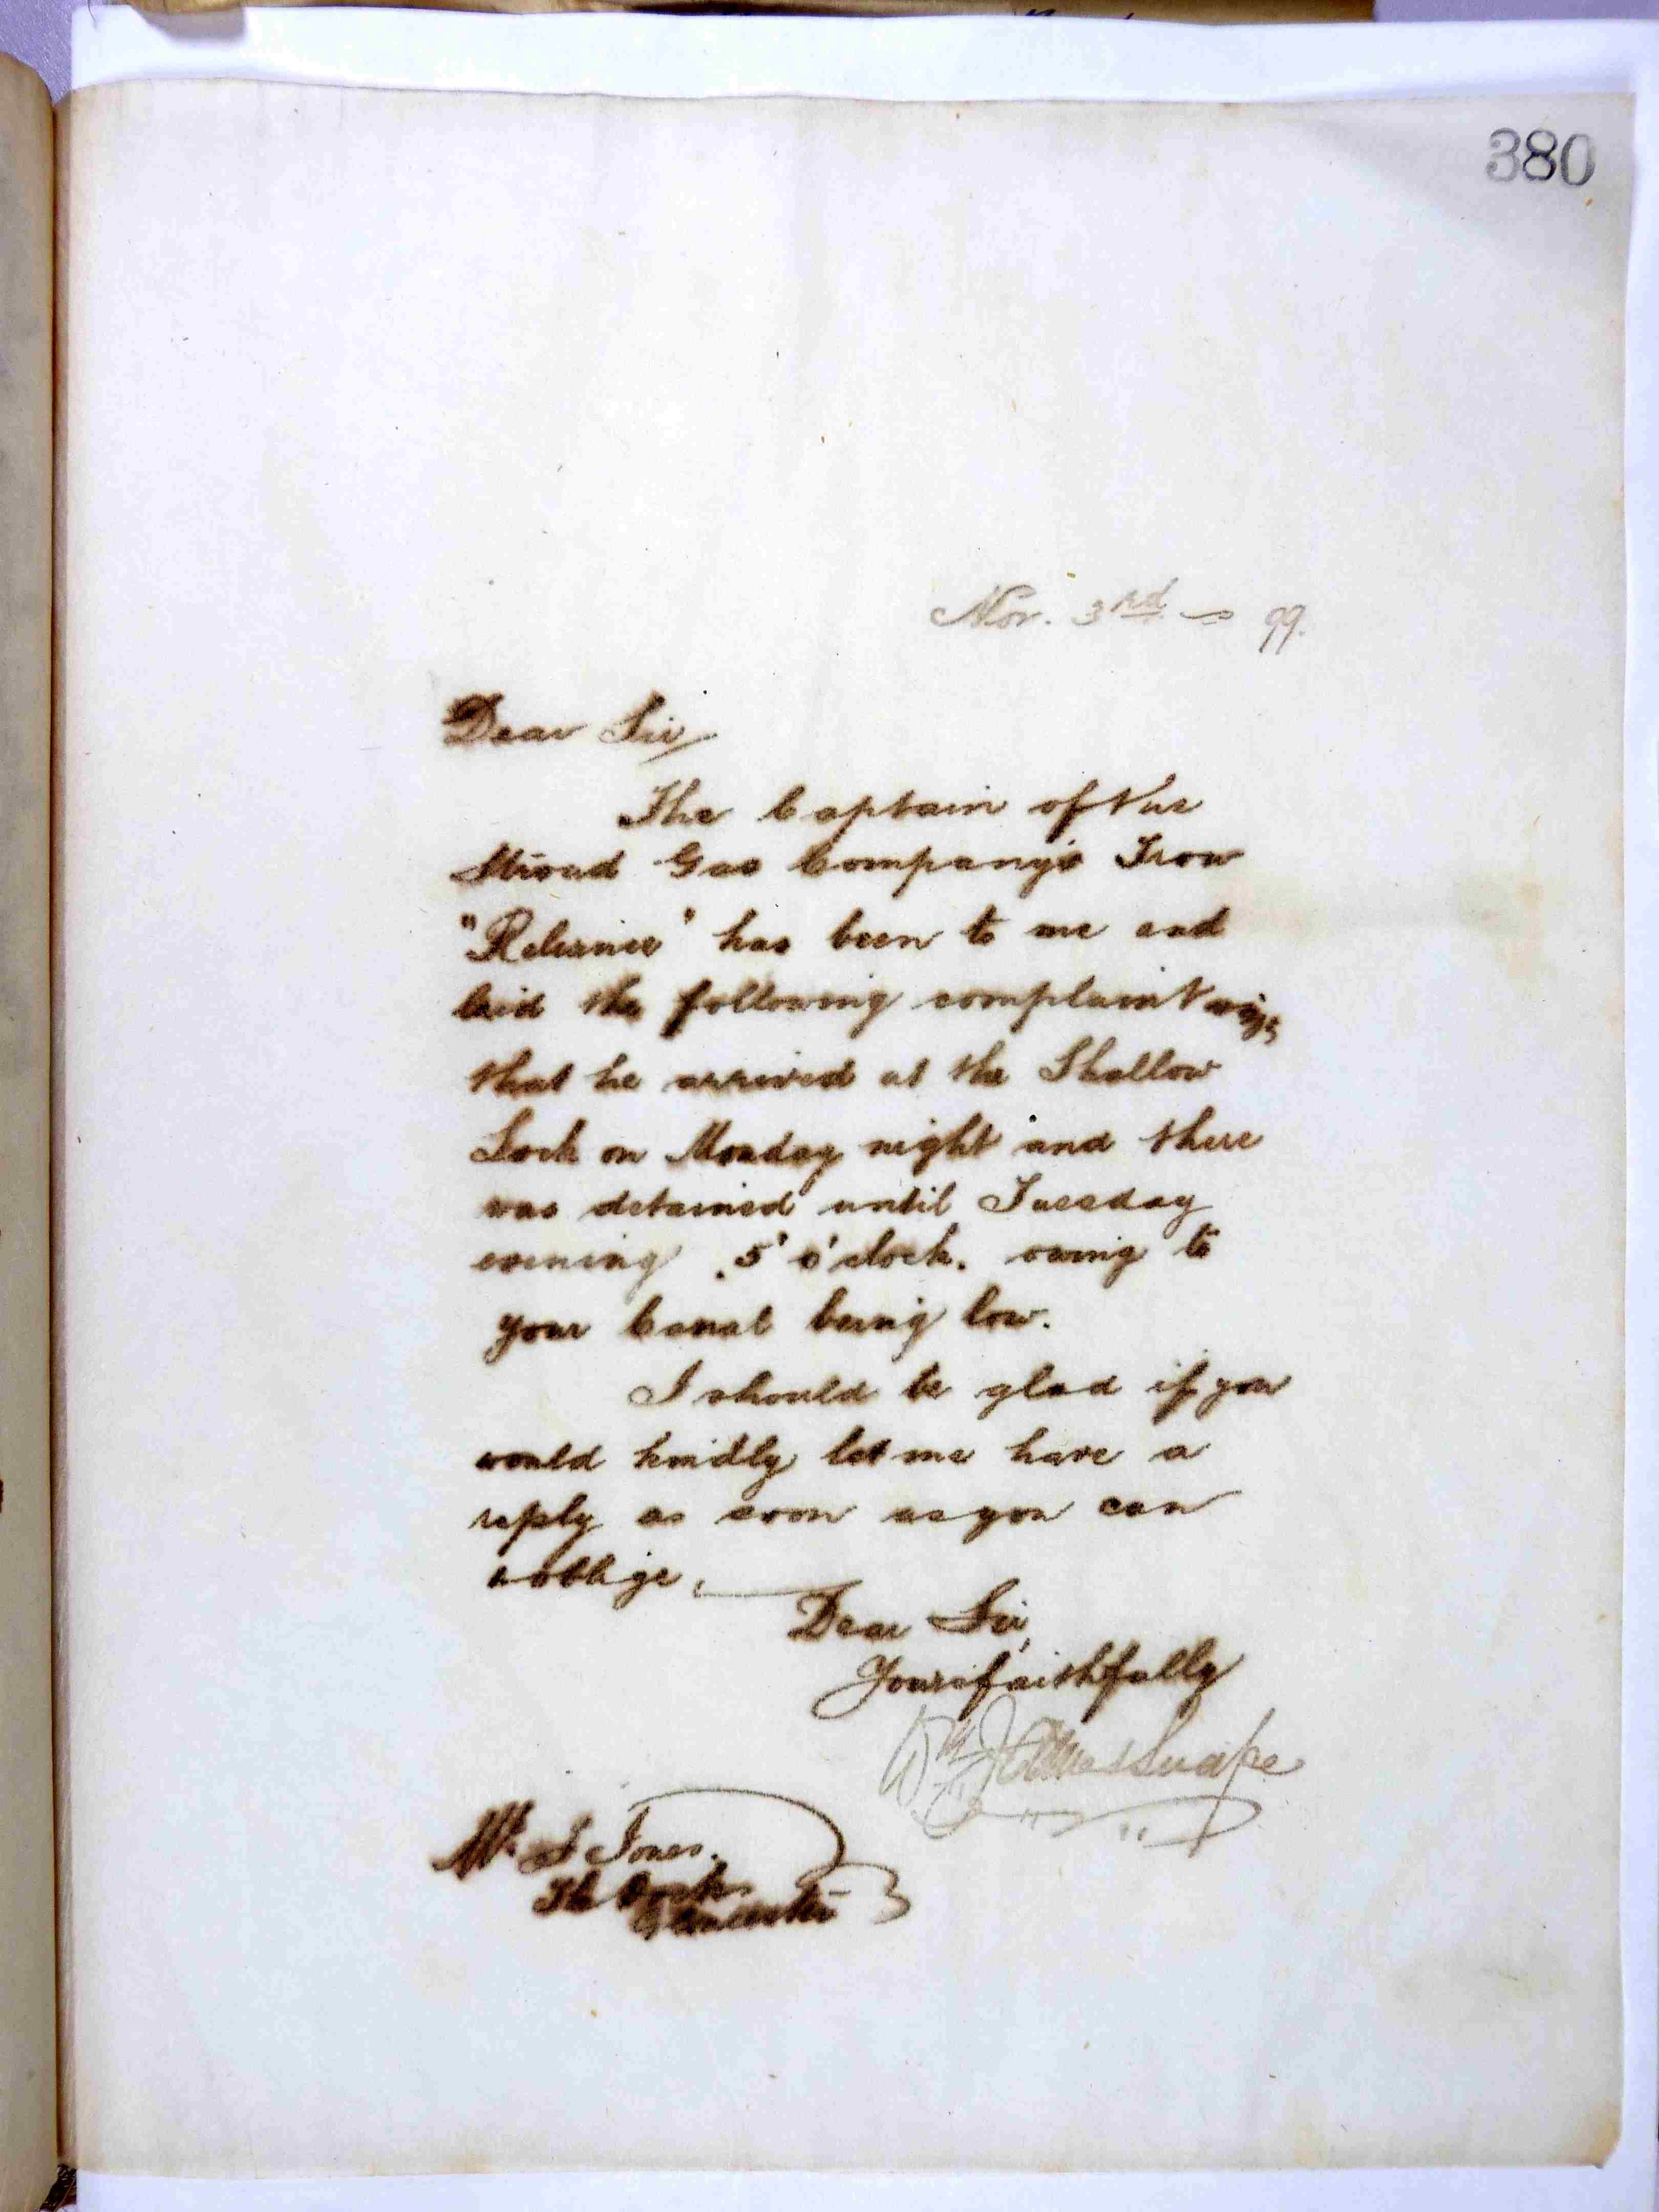 380
Nov. 3rd 99.
Dear Sir
The Captain of the
Stroud Gas Company's Trow
"Reliance" has been to me and
laid the following complaint viz:
that he arrived at the Shallow
Lock on Monday night and there
was detained until Tuesday
evening 5 o'clock. owing to
your Canal being low.
I should be glad if you
would kindly let me have a
reply as soon as you can
& oblige,
Dear Sir,
Yours faithfully
Wm J Snape
Mr. S Jones.
The Dock
Gloucester